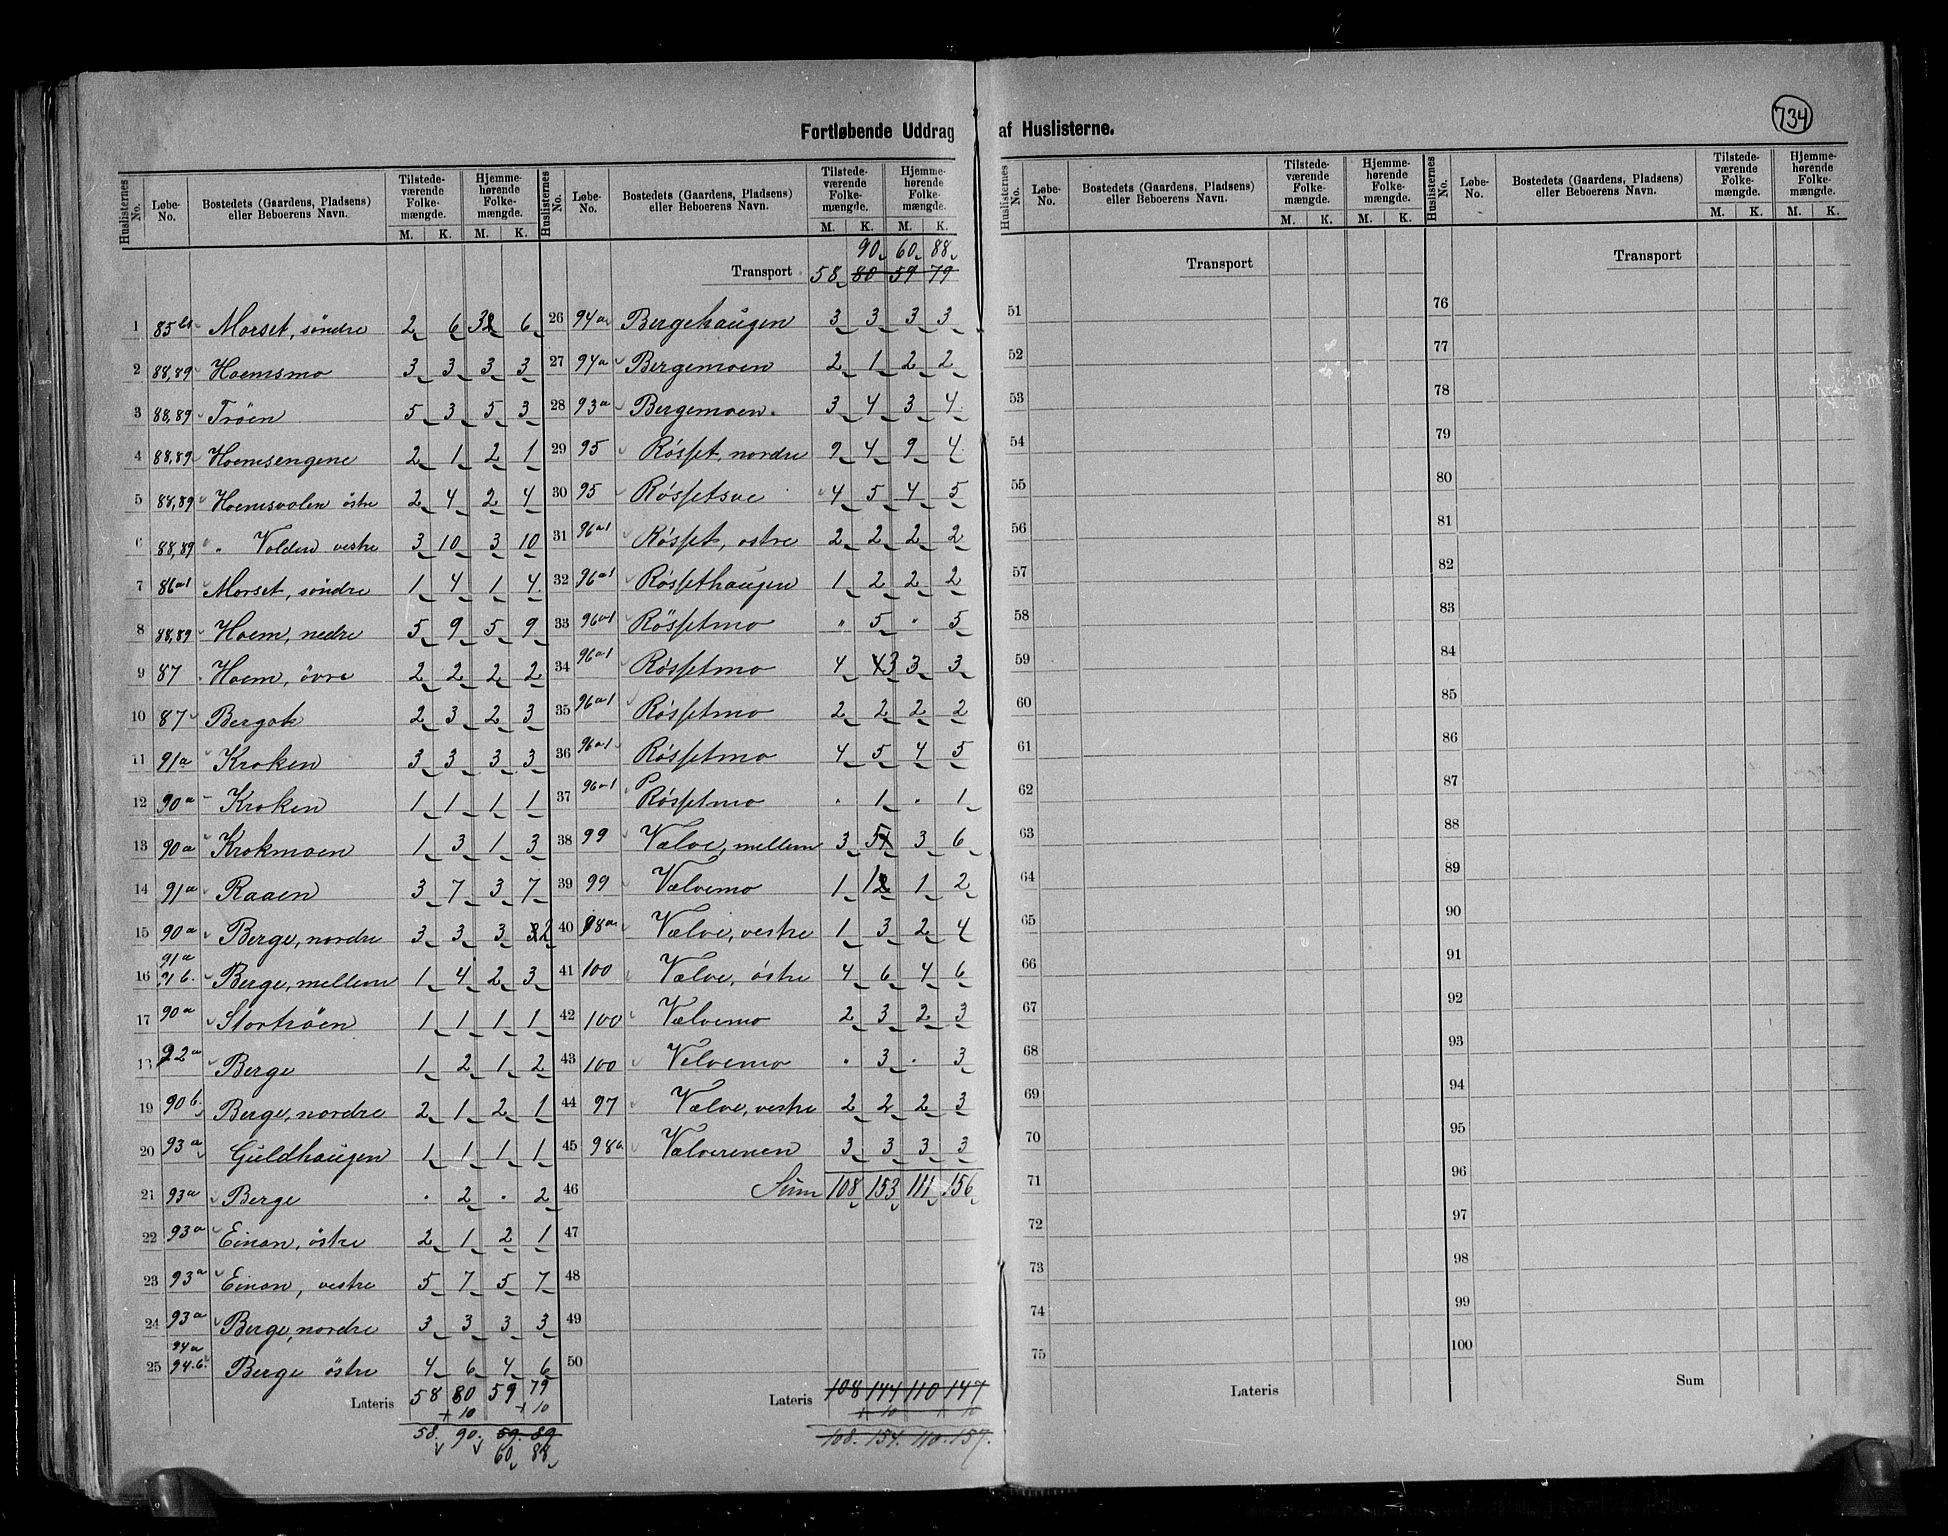 734
Fortløbende Uddrag af Huslisterne.
Huslisternes No. Løbe-No. Bostedets (Gaardens, Pladsens) eller Beboerens Navn. Tilstede-værende Folke-mængde. Hjemme-hørende Folke-mængde.
M. K. M. K.
1 85 Morset, søndre 2 6 3 6
2 88,89 Hoemsmo 3 3 3 3
3 88,89 Trøen 5 3 5 3
4 88,89 Hoemsengene 2 1 2 1
5 88,89 Hoemsvolen østre 2 4 2 4
6 88,89 " Volden vestre 3 10 3 10
7 86a1 Morset, søndre 1 4 1 4
8 88,89 Hoem, nedre 5 9 5 9
9 87 Hoem, øvre 2 2 2 2
10 87 Bergak 2 3 2 3
11 91a Kroken 3 3 3 3
12 90a Kroken 1 1 1 1
13 90a Krokmoen 1 3 1 3
14 91a Raaen 3 7 3 7
15 90a Berge, nordre 3 3 3 2
16 91a 91b. Berge, mellem 1 4 2 3
17 90a Stortrøen 1 1 1 1
18 92a Berge 1 2 1 2
19 90b. Berge, nordre 2 1 2 1
20 93a Guldhaugen 1 1 1 1
21 93a Berge . 2 . 2
22 93a Einan, østre 2 1 2 1
23 93a Einan, vestre 5 7 5 7
24 93a Berge, nordre 3 3 3 3
25 94a 94.b. Berge østre 4 6 4 6
Lateris 58 80 59 79
+10 +10
58. 90. 59. 89
60 88
Huslisternes No. Løbe-No. Bostedets (Gaardens, Pladsens) eller Beboerens Navn. Tilstede-værende Folke-mængde. Hjemme-hørende Folke-mængde.
M. K. M. K.
90 60 88
Transport 58 80 59 79
26 94a Bergehaugen 3 3 3 3
27 94a Bergemoen 2 1 2 2
28 93a Bergemoen. 3 4 3 4
29 95 Røsset, nordre 9 4 9 4
30 95 Røssetsve 4 5 4 5
31 96a1 Røsset, østre 2 2 2 2
32 96a1 Røssethaugen 1 2 2 2
33 96a1 Røssetmo " 5 " 5
34 96a1 Røssetmo 4 3 3 3
35 96a1 Røssetmo 2 2 2 2
36 96a1 Røssetmo 4 5 4 5
37 96a1 Røssetmo . 1 . 1
38 99 Vælve, mellem 3 5 3 6
39 99 Vælvemo 1 1 1 2
40 98a Vælve, vestre 1 3 2 4
41 100 Vælve, østre 4 6 4 6
42 100 Vælvemo 2 3 2 3
43 100 Velvemo . 3 . 3
44 97 Vælve, vestre 2 2 2 3
45 98a Vælverenen 3 3 3 3
46 Sum 108 153 111 156
47
48
49
50
Lateris 108 144 110 147
+ 10 + 10
108. 154. 110. 157.
Huslisternes No. Løbe-No. Bostedets (Gaardens, Pladsens) eller Beboerens Navn. Tilstede-værende Folke-mængde. Hjemme-hørende Folke-mængde.
M. K. M. K.
Transport
51
52
53
54
55
56
57
58
59
60
61
62
63
64
65
66
67
68
69
70
71
72
73
74
75
Lateris
Huslisternes No. Løbe-No. Bostedets (Gaardens, Pladsens) eller Beboerens Navn. Tilstede-værende Folke-mængde. Hjemme-hørende Folke-mængde.
M. K. M. K.
Transport
76
77
78
79
80
81
82
83
84
85
86
87
88
89
90
91
92
93
94
95
96
97
98
99
100
Sum